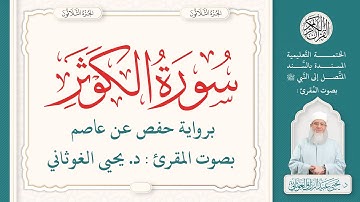 الجزء الثلاثون
الجزء الثلاثون
سُورَةُ الكَوْثَرِ
برواية حفص عن عاصم
بصوت المقرئ : د. يحيى الغوثاني
القرآن الكريم
الختمة التعليمية
المسندة بالسند
المتصل إلى النبي ﷺ
بصوت المقرئ :
د. يحيى عبد الرزاق الغوثاني